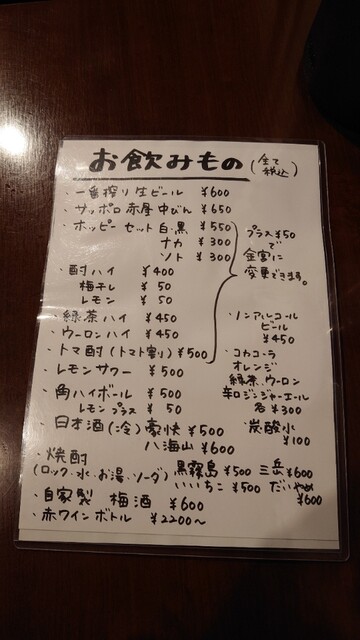 お飲みもの (全て税込)
・一番搾り生ビール ¥600
・サッポロ赤星中びん ¥650
・ホッピーセット白・黒 ¥550
ナカ ¥300
ソト ¥300
・酎ハイ ¥400
梅干し ¥50
レモン ¥50
・緑茶ハイ ¥450
・ウーロンハイ ¥450
・トマ酎(トマト割り) ¥500
プラス¥50
で
金宮に
変更できます。
・レモンサワー ¥500
・角ハイボール ¥500
レモンプラス ¥50
・日本酒(冷) 豪快 ¥500
八海山 ¥600
・焼酎
(ロック・水・お湯・ソーダ)
黒霧島 ¥500 三岳 ¥600
いいちこ ¥500 だいやめ ¥600
・自家製 梅酒 ¥600
・赤ワインボトル ¥2200〜
・ノンアルコール
ビール
¥450
・コカコーラ
オレンジ
緑茶・ウーロン
辛口ジンジャーエール
各¥300
・炭酸水
¥100